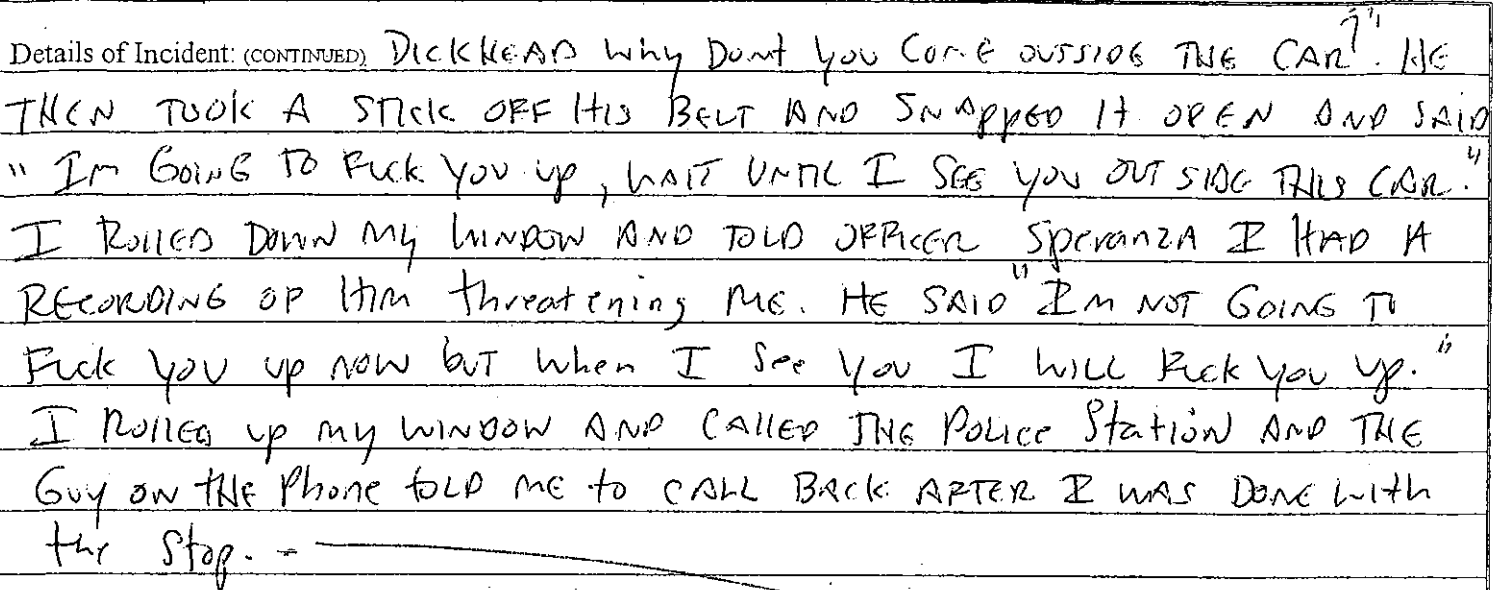 Details of Incident: (CONTINUED) DICKHEAD Why Dont you Come OUTSIDE THE CAR?". HE
THEN TOOK A STICK OFF HIS BELT AND SNAPPED It OPEN AND SAID
" Im GOING TO FUCK YOU up, WAIT UNTIL I SEE YOU OUT SIDE THIS CAR."
I ROLLED DOWN MY WINDOW AND TOLD OFFICER Speranza I HAD A
RECORDING OF HIM threatening ME. HE SAID "Im NOT GOING TO
FUCK YOU up NOW but when I See You I WILL FUCK YOU up."
I ROLLED up my WINDOW AND CALLED THE Police Station AND THE
Guy ON THE Phone tOLD ME to CALL BACK AFTER I WAS DONE With
the Stop. -